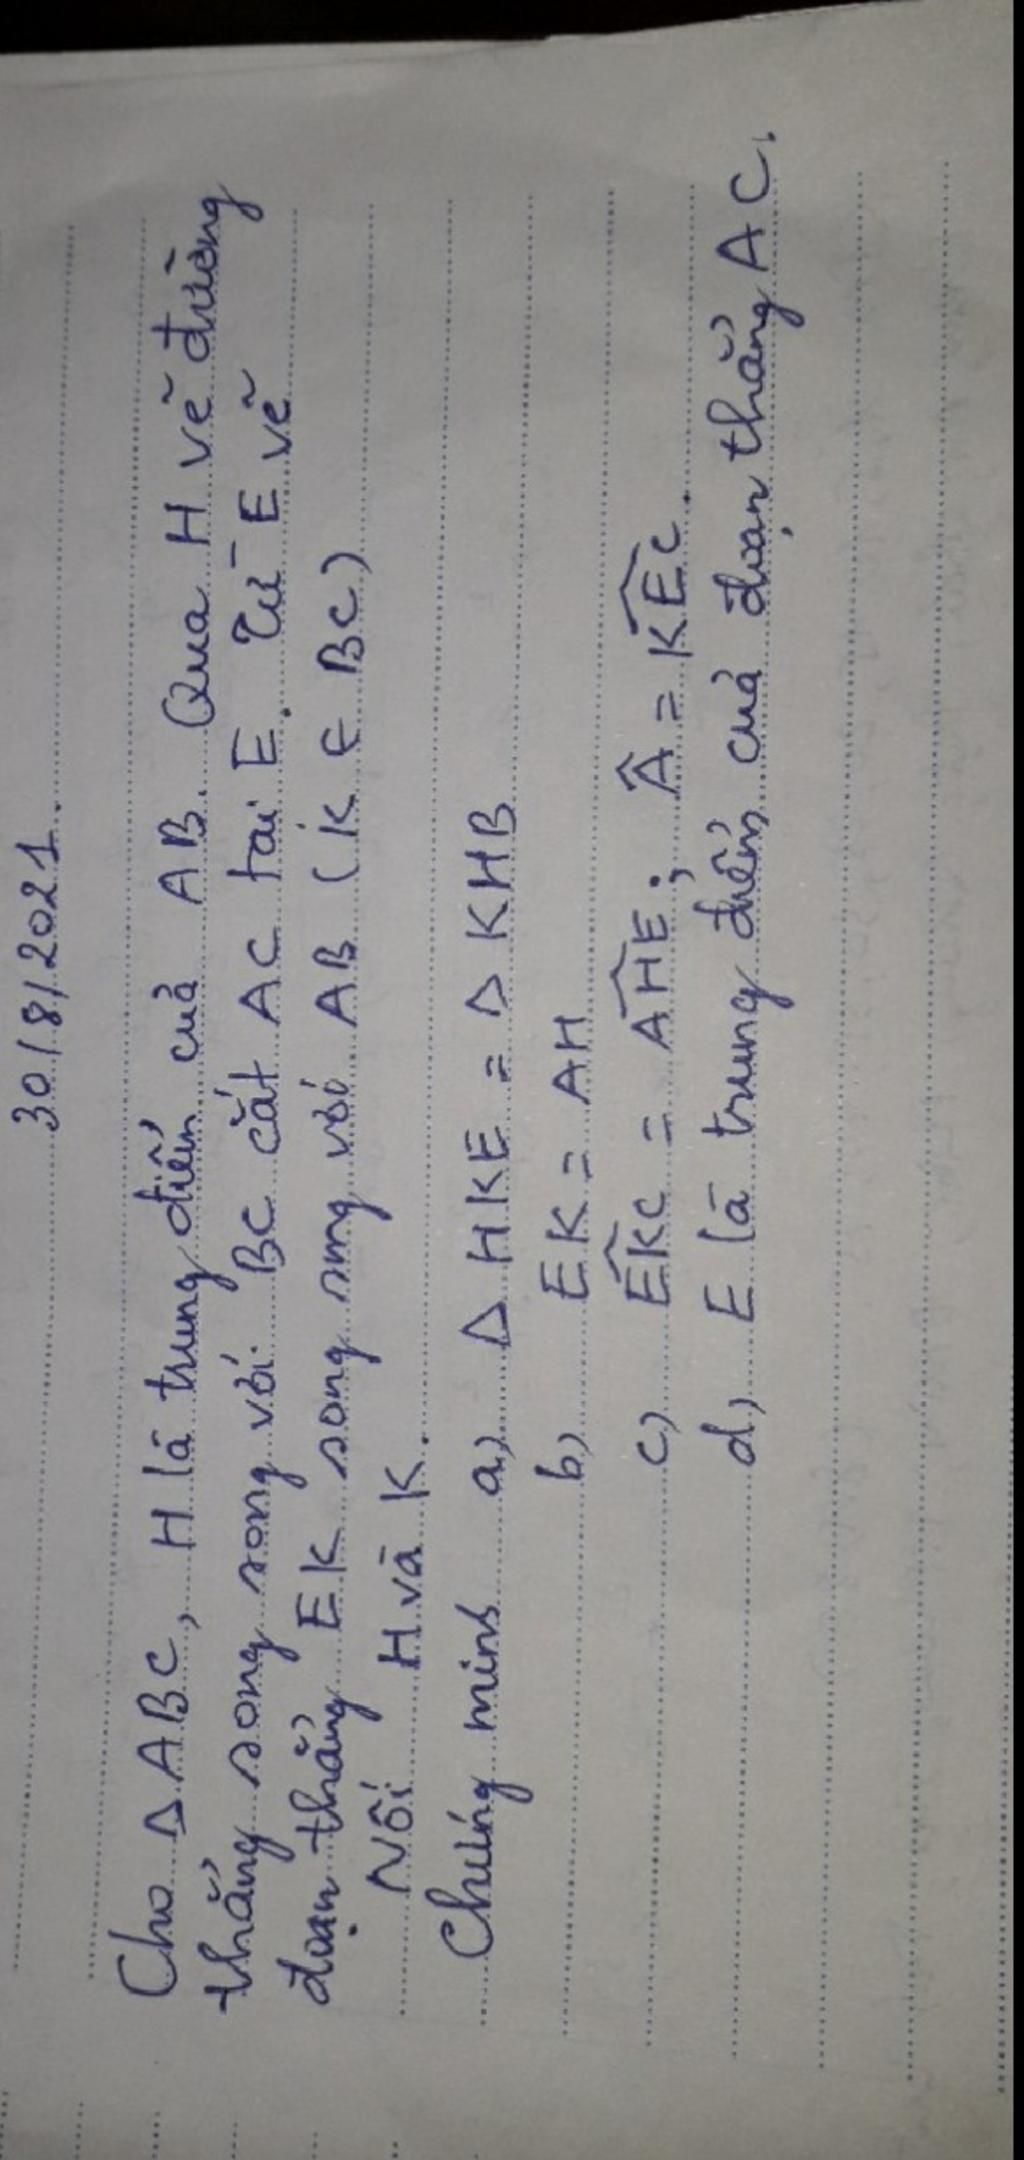 30/8/2021.
Cho Δ ABC, H là trung điểm của AB. Qua H vẽ đường
thẳng song song với BC cắt AC tại E. Từ E vẽ
đoạn thẳng EK song song với AB (K ∈ BC)
Nối H và K.
Chứng minh a, Δ HKE = Δ KHB
b, EK = AH
c, \widehat{EKC} = \widehat{AHE}; Â = \widehat{KEC}.
d, E là trung điểm của đoạn thẳng AC.